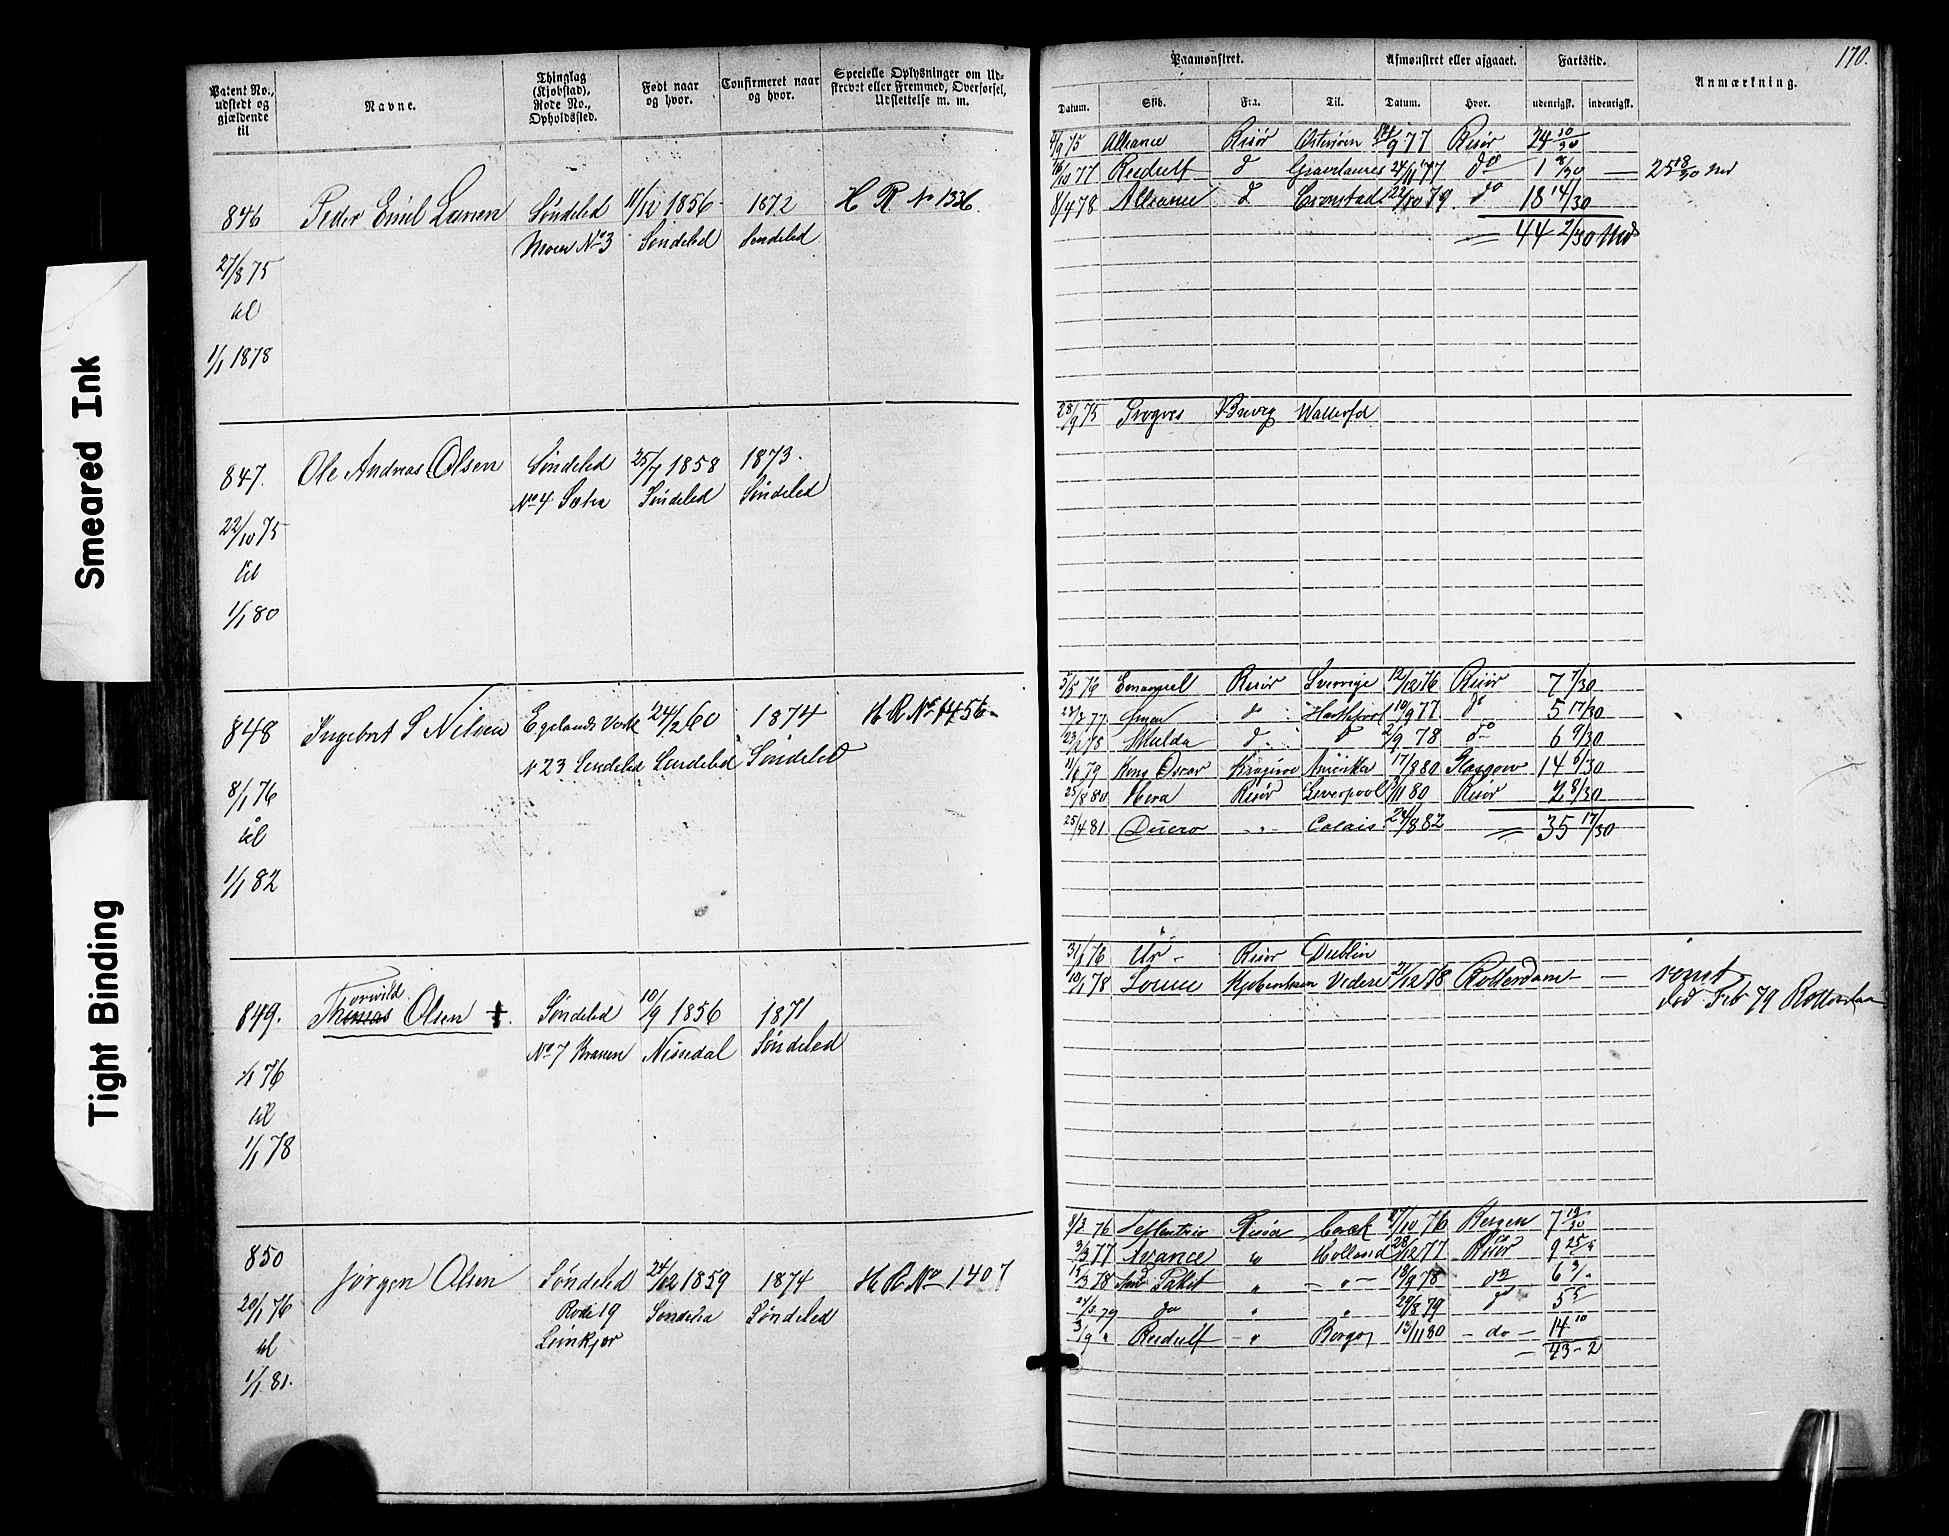 Smeared Ink
Tight Binding
170.
Patent No., udstedt og gjældende til
Navne.
Thinglag (Kjøbstad), Rode No., Opholdssted.
Født naar og hvor.
Confirmeret naar og hvor.
Specielle Oplysninger om Udskrevet eller Fremmed, Overførsel, Udslettelse m. m.
Paamønstret.
Afmønstret eller afgaaet.
Fartstid.
Anmærkning.
Datum. Skib. Fra. Til. Datum. Hvor. udenrigsk. indenrigsk.
846 Peder Emil Larsen Søndeled 11/12 1856 1872 H R No 1336.
Moen No 3 Søndeled Søndeled
27/8 75
til
1/1 1878
4/9 75 Alliance Risør Østersøen 9 77 Risør 24 20/30
16/10 77 Reidulf d 24/11 77 do 1 8/30 — 25 18/30 Md
8/4 78 Alliance d Cronstad 22/10 79 do 18 14/30
44 2/30 Md
847. Ole Andreas Olsen Søndeled 25/7 1858 1873.
No 4 Søndeled Søndeled
22/10 75
til
1/1 80
28/9 75 Progres Brevig
848 Ingebort S Nilsen Egelands Verk 24/2 60 1874 H R No 1456
N 23 Søndeled Søndeled Søndeled
8/1 76
til
1/1 82
5/5 76 Emanuel Risør Sverrige 12/12 76 Risør 7 7/30
77 do Harthpool 10/9 77 do 5 17/30
78 Skulda d d 2/9 78 do 6 9/30
79 Kong Oscar Kragerø Amerika 17/8 80 Glasgow 14 6/30
25/8 80 Hera Risør Liverpool 80 Risør 2 8/30
25/4 81 Duero - " - Calais 24/8 82 35 17/30
849. Thomas Torvild Olsen †. Søndeled 10/9 1856 1871
No 7 Nissedal Søndeled
1/1 76
til
1/1 78
31/1 76 Ur - Risør Dublin
10/1 78 Kjøbenhavn 2/12 78 Rotterdam — — rømt
død Feb 79 Rotterdam
850
Jørgen Olsen Søndeled 24/12 1859 1874 H R No 1407
Rode 19 Søndeled Søndeled
20/1 76
til
1/1 81.
8/3 76 Septentrio Risør Cork 10 76 Bergen 7 19/30
3/3 77 Avance " Holland 28/12 77 Risør 9 25/"
15/3 78 " - " - 18/9 78 do 6 3/"
79 do " " 29/8 79 do 5 5
3/9 " Reidulf - " Borgo 13/11 80 - do - 14 10
43 - 2